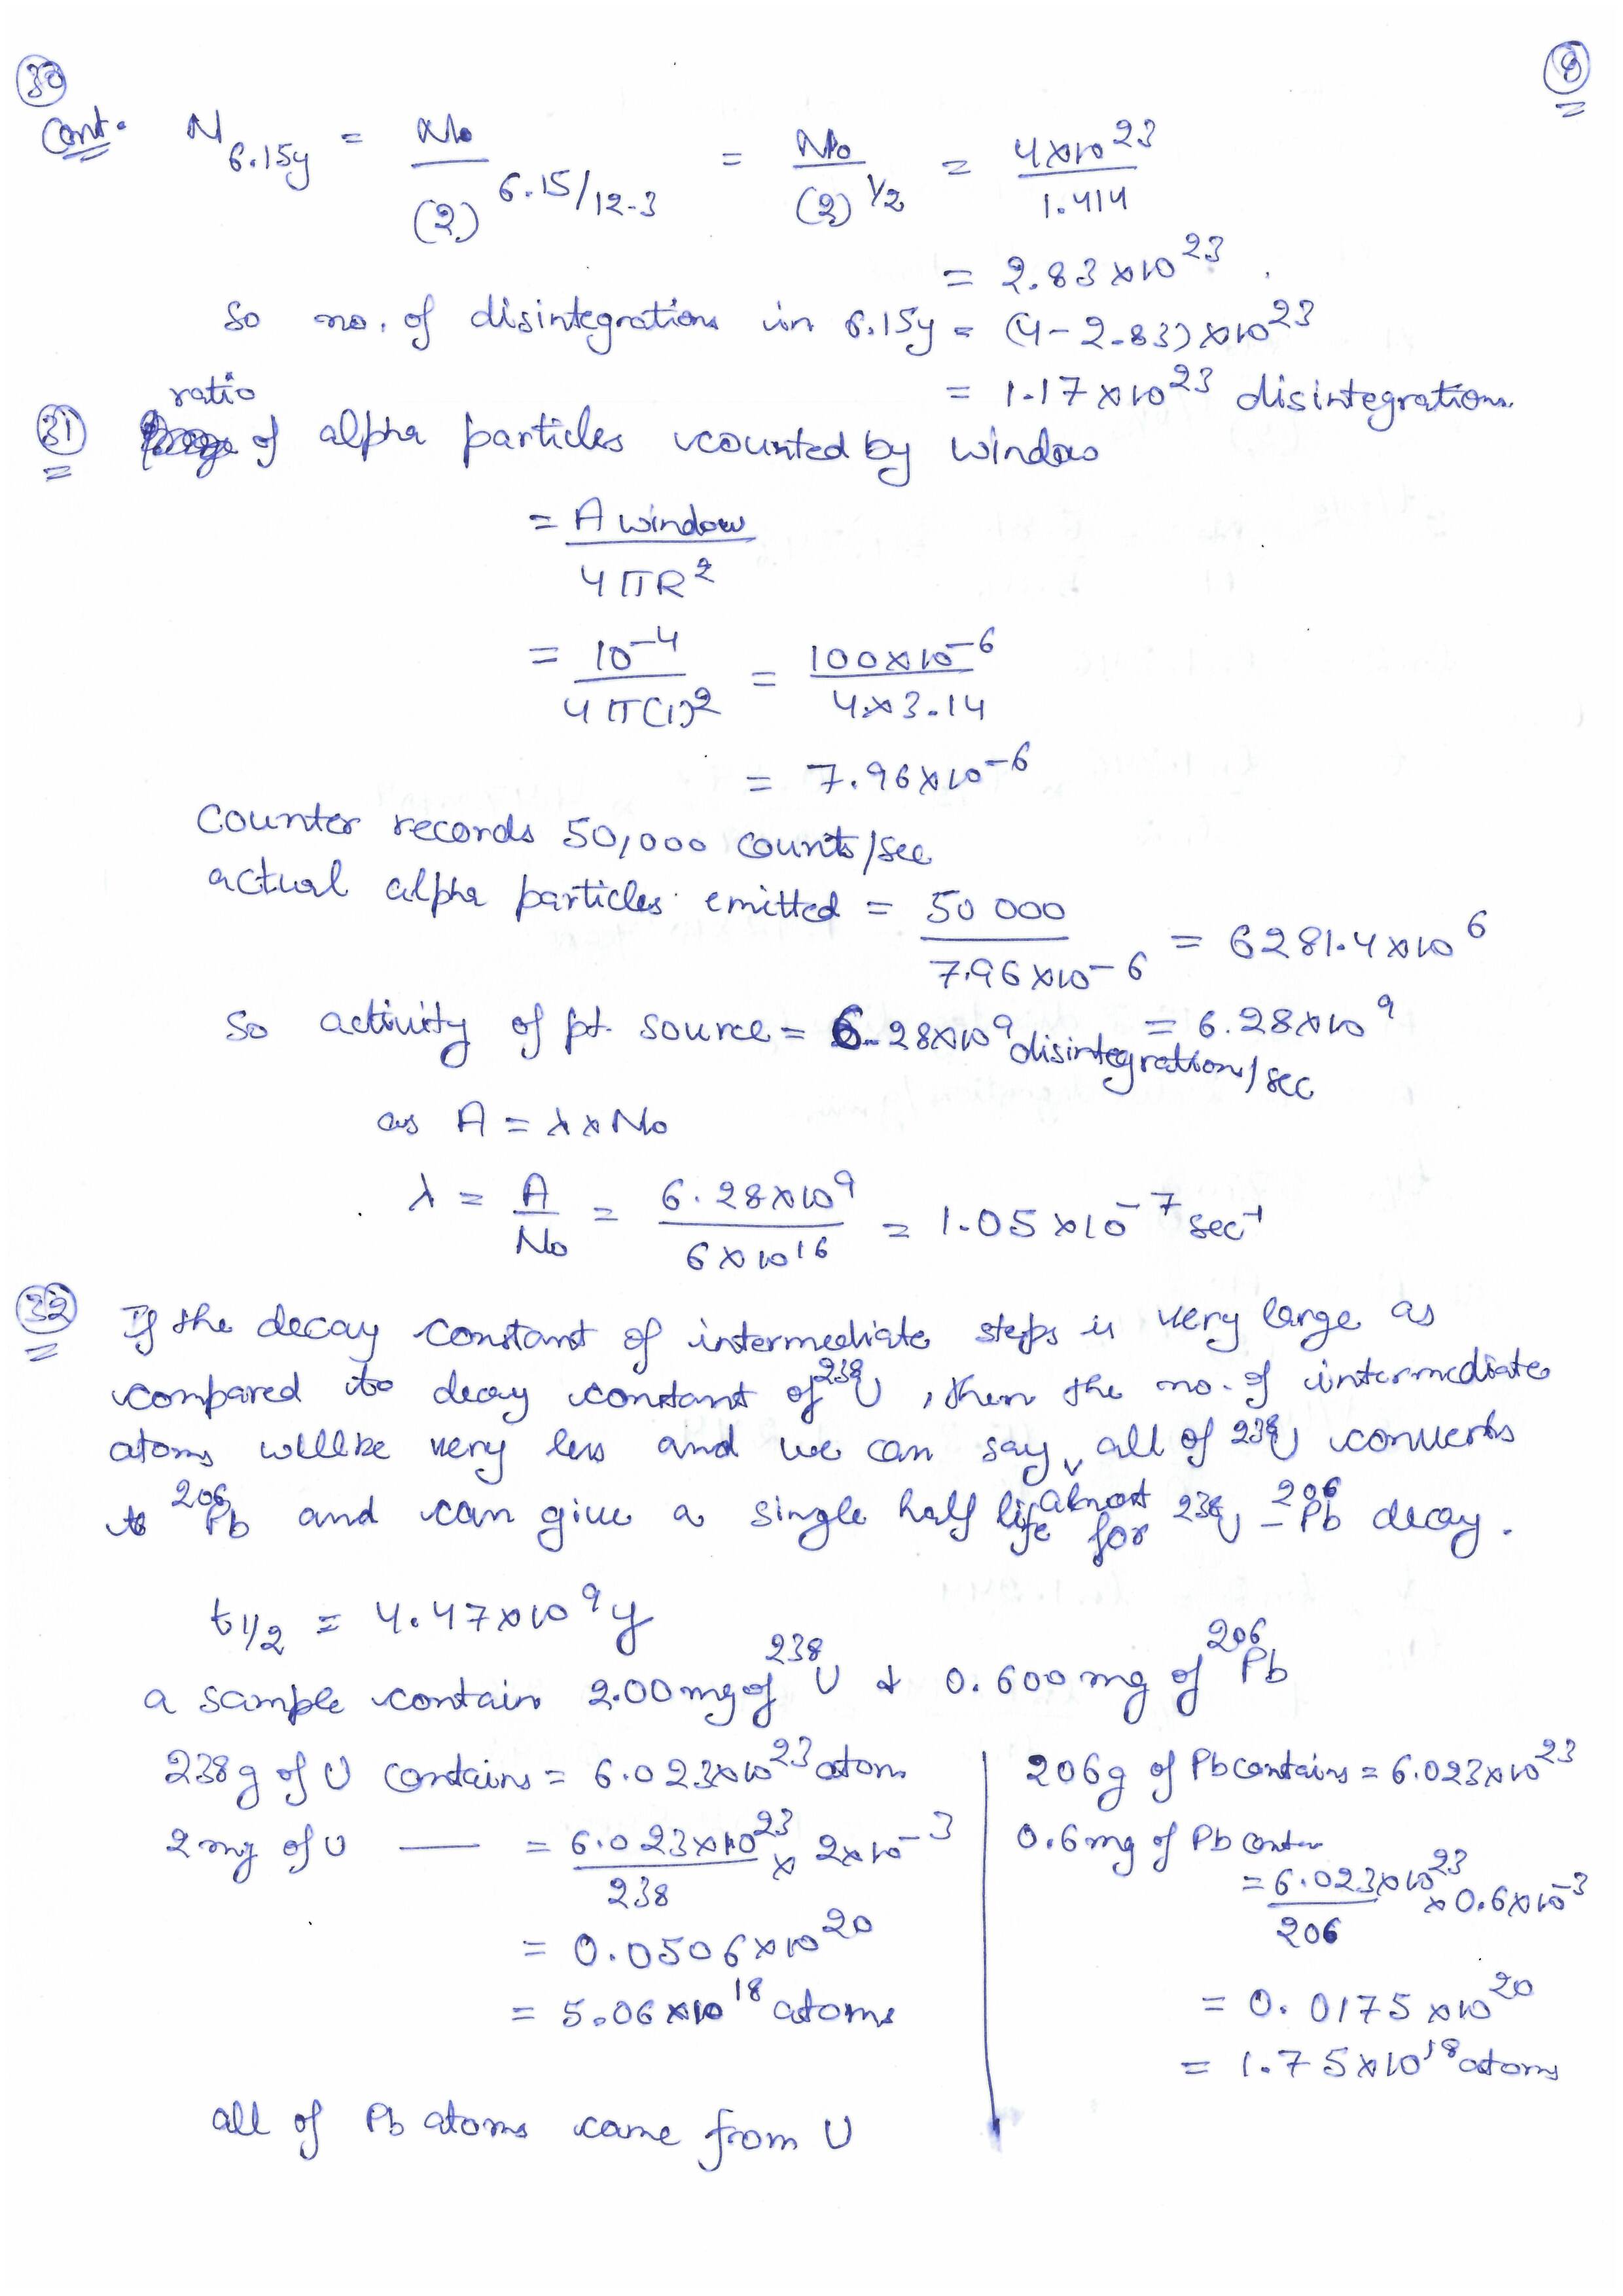 30 8
Cont. N6.15y = No/(2)^6.15/12.3 = No/(2)^1/2 = 4×10^23/1.414
= 2.83×10^23.
So no. of disintegrations in 6.15y = (4-2.83)×10^23
= 1.17×10^23 disintegrations.
31 ratio of alpha particles counted by window
= A window/4πR^2
= 10^-4/4π(1)^2 = 100×10^-6/4×3.14
= 7.96×10^-6
Counter records 50,000 counts/sec
actual alpha particles emitted = 50 000/7.96×10^-6 = 6281.4×10^6
= 6.28×10^9
So activity of pt. source = 6.28×10^9 disintegrations/sec
as A = λ×No
λ = A/No = 6.28×10^9/6×10^16 = 1.05×10^-7 sec^-1
32 If the decay constant of intermediate steps is very large as
compared to decay constant of 238U, then the no. of intermediate
atoms will be very less and we can say almost all of 238U converts
to 206Pb and can give a single half life for 238U - 206Pb decay.
t1/2 = 4.47×10^9y
a sample contain 2.00mg of 238U & 0.600 mg of 206Pb
238g of U contains = 6.023×10^23 atoms
2mg of U — = 6.023×10^23/238 × 2×10^-3
= 0.0506×10^20
= 5.06×10^18 atoms
206g of Pb contains = 6.023×10^23
0.6mg of Pb
= 6.023×10^23/206 × 0.6×10^-3
= 0.0175×10^20
= 1.75×10^18 atoms
all of Pb atoms came from U